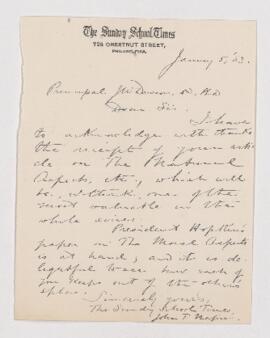 The Sunday School Times
725 CHESTNUT STREET,
PHILADELPHIA.
January 5, '83.
Principal J. W. Dawson,
Dear Sir:
I have
to acknowledge with thanks
the receipt of your arti-
cle on The Natural
Aspects, etc., which will
be, I think, one of the
most valuable in the
whole series.
President Hopkins'
paper on The Moral Aspects
is at hand, and it is de-
lightful to see how each of
you keeps out of the other's
sphere.
Sincerely yours,
The Sunday School Times,
John T.